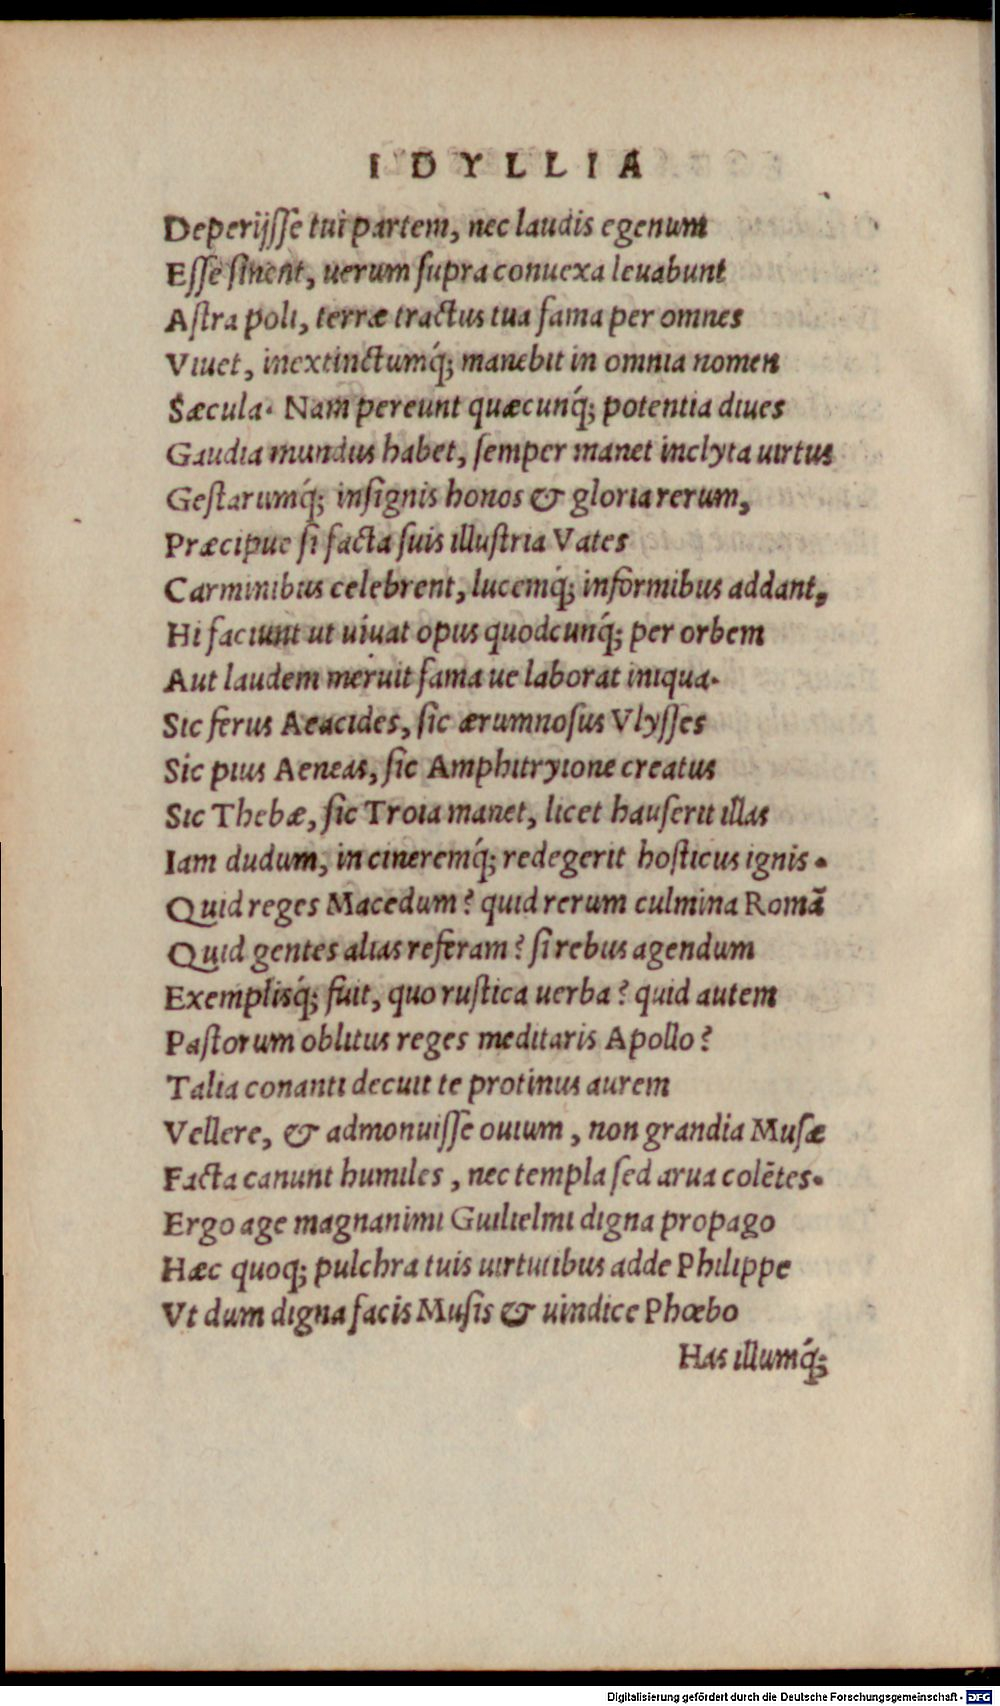 IDYLLIA
Deperijſſe tui partem, nec laudis egenum
Eſſe ſinent, uerum ſupra conuexa leuabunt
Aſtra poli, terræ tractus tua fama per omnes
Viuet, inextinctumq́; manebit in omnia nomen
Sæcula. Nam pereunt quæcunq́; potentia diues
Gaudia mundus habet, ſemper manet inclyta uirtus
Geſtarumq́; inſignis honos & gloria rerum,
Præcipue ſi facta ſuis illuſtria Vates
Carminibus celebrent, lucemq́; informibus addant,
Hi faciunt ut uiuat opus quodcunq́; per orbem
Aut laudem meruit fama ue laborat iniqua.
Sic ferus Aeacides, ſic ærumnoſus Vlyſſes
Sic pius Aeneas, ſic Amphitryione creatus
Sic Thebæ, ſic Troia manet, licet hauſerit illas
Iam dudum, in cineremq́; redegerit hoſticus ignis.
Quid reges Macedum? quid rerum culmina Romã
Quid gentes alias referam? ſi rebus agendum
Exemplisq́; fuit, quo ruſtica uerba? quid autem
Paſtorum oblitus reges meditaris Apollo?
Talia conanti decuit te protinus aurem
Vellere, & admonuiſſe ouium, non grandia Muſæ
Facta canunt humiles, nec templa ſed arua colẽtes.
Ergo age magnanimi Guilielmi digna propago
Hæc quoq; pulchra tuis uirtutibus adde Philippe
Vt dum digna facis Muſis & uindice Phœbo
Has illumq́;
Digitalisierung gefördert durch die Deutsche Forschungsgemeinschaft - DFG